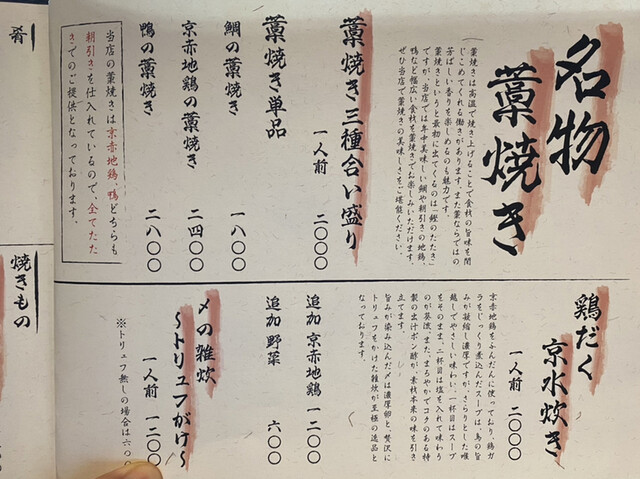 名物
藁焼き
（藁焼きは高温で焼き上げることで食材の旨味を閉
じこめてくれる働きがあります。また藁ならではの
芳ばしい香りを楽しめるのも魅力です。
藁焼きというと最初に出てくるのは「鰹のたたき」
ですが、当店では年中美味しい鯛や朝引きの地鶏、
鴨など幅広い食材を藁焼きでお楽しみいただけます。
ぜひ当店で藁焼きの美味しさをご堪能ください。
藁焼き三種合い盛り
一人前 二〇〇〇
藁焼き単品
鯛の藁焼き 一八〇〇
京赤地鶏の藁焼き 二四〇〇
鴨の藁焼き 二八〇〇
当店の藁焼きは京赤地鶏、鴨どちらも
朝引きを仕入れているので、全てたた
きでのご提供となっております。
鶏だく
京水炊き
一人前 二〇〇〇
京赤地鶏をふんだんに使っており、鶏ガ
ラをじっくり煮込んだスープは、鳥の旨
みが凝縮し濃厚ですが、さらりとした喉
越しでやさしい味わい。一杯目はスープ
をそのまま、二杯目は塩を入れて味わう
のが葵流。また、まろやかでコクのある特
製の出汁ポン酢が、素材本来の味を引き
立てます。
旨みが染み込んだ〆は濃厚卵と、贅沢に
トリュフをかけた雑炊が至極の逸品と
なっております。
追加 京赤地鶏 一二〇〇
追加 野菜 六〇〇
〆の雑炊
～トリュフがけ～
一人前 一二〇〇
※トリュフ無しの場合は六〇〇
肴
焼きもの